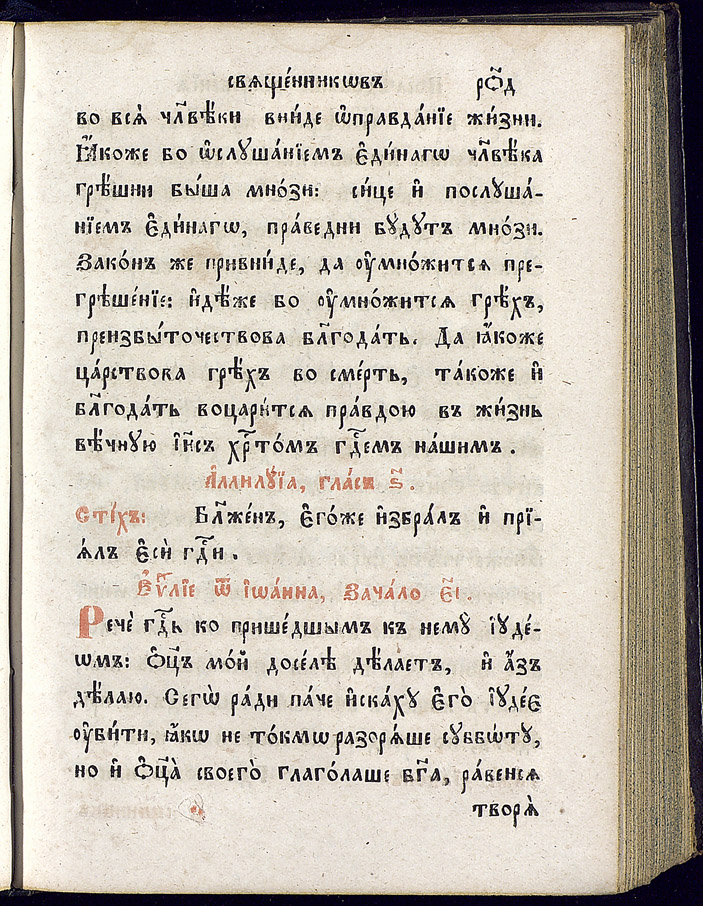 свѧще́нникѡвъ рѻ҃д
во всѧ̀ чл҃вѣ́ки вни́де ѡ҆правда́нїе жи́зни.
Ꙗ҆́коже бо ѡ҆слꙋша́нїемъ є҆ди́нагѡ чл҃вѣ́ка
грѣ́шни бы́ша мно́зи: си́це и҆ послꙋша́-
нїемъ є҆ди́нагѡ, пра́ведни бꙋ́дꙋтъ мно́зи.
Зако́нъ же привни́де, да ᲂу҆мно́житсѧ пре-
грѣше́нїе: и҆дѣ́же бо ᲂу҆мно́житсѧ грѣ́хъ,
преизбы́точествова бл҃года́ть. Да ꙗ҆́коже
ца́рствова грѣ́хъ во сме́рть, та́коже и҆
бл҃года́ть воцари́тсѧ пра́вдою въ жи́знь
вѣ́чнꙋю і҆и҃съ хрⷭ҇то́мъ гдⷭ҇емъ на́шимъ.
А҆ллилꙋ́їа, гла́съ ѕ҃.
Сті́хъ: Бл҃же́нъ, є҆го́же и҆збра́лъ и҆ прїѧ́-
ѧ́лъ є҆сѝ гдⷭ҇и.
Є҆ѵⷢ҇лїе ѿ і҆ѡа́нна, Зача́ло є҃і.
Речѐ гдⷭ҇ь ко прише́дшымъ къ немꙋ̀ і҆ꙋде́-
ѡмъ: Ѻ҆ц҃ъ мо́й досе́лѣ дѣ́лаетъ, и҆ а҆́зъ
дѣ́лаю. Сегѡ̀ ра́ди па́че и҆ска́хꙋ є҆го̀ і҆ꙋде́є
ᲂу҆би́ти, ꙗ҆́кѡ не то́кмѡ разорѧ́ше сꙋббѡ́тꙋ,
но и҆ Ѻ҆ц҃а̀ своего̀ глаго́лаше бг҃а, ра́венсѧ
творѧ̀